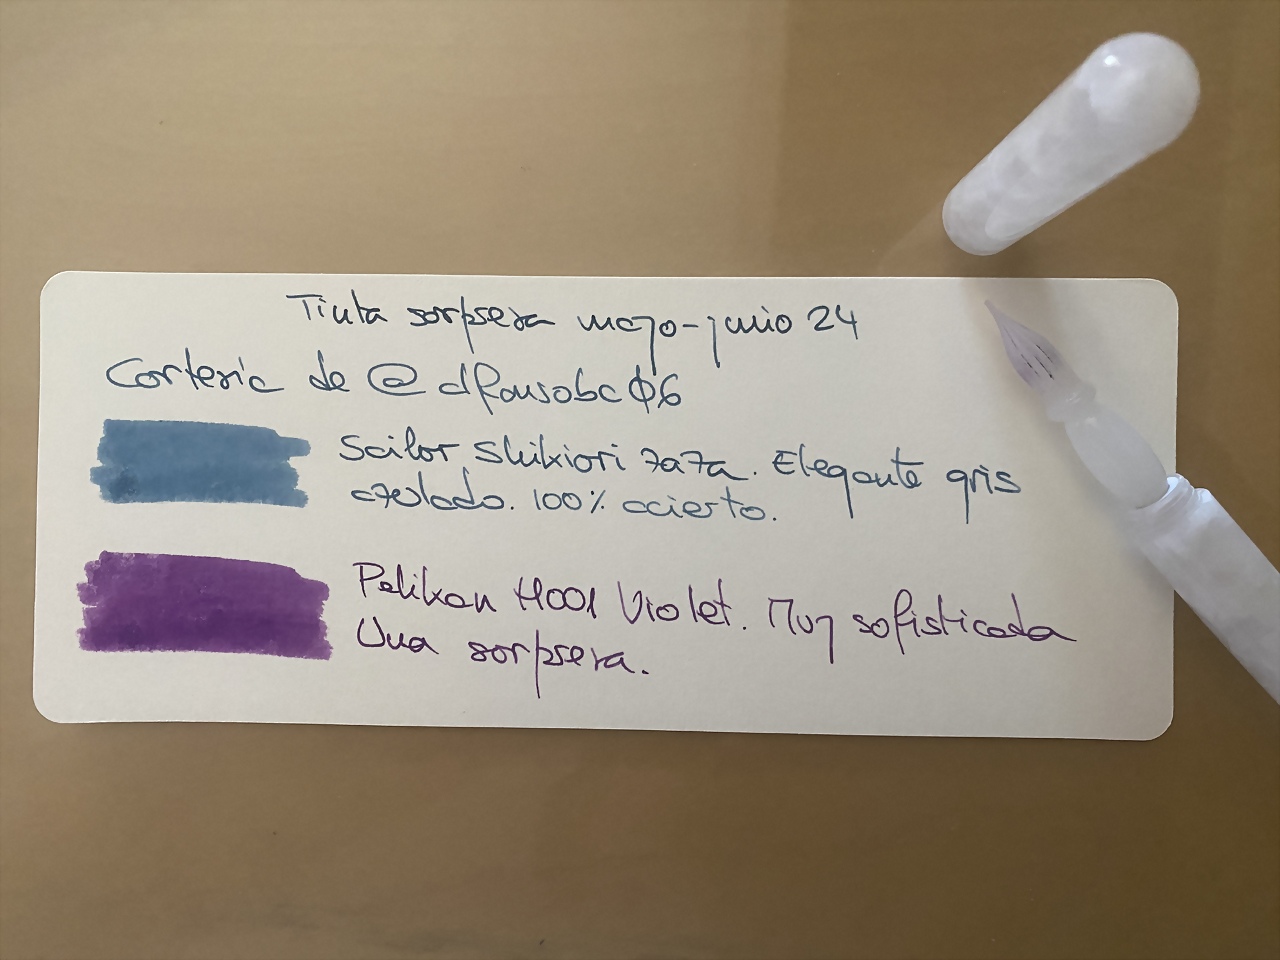 Tinta sorpresa mayo-junio 24
Cortesía de @alfonsobc06
Sailor Shikiori Zaza. Elegante gris
azulado. 100% acierto.
Pelikan 4001 Violet. Muy sofisticada
Una sorpresa.